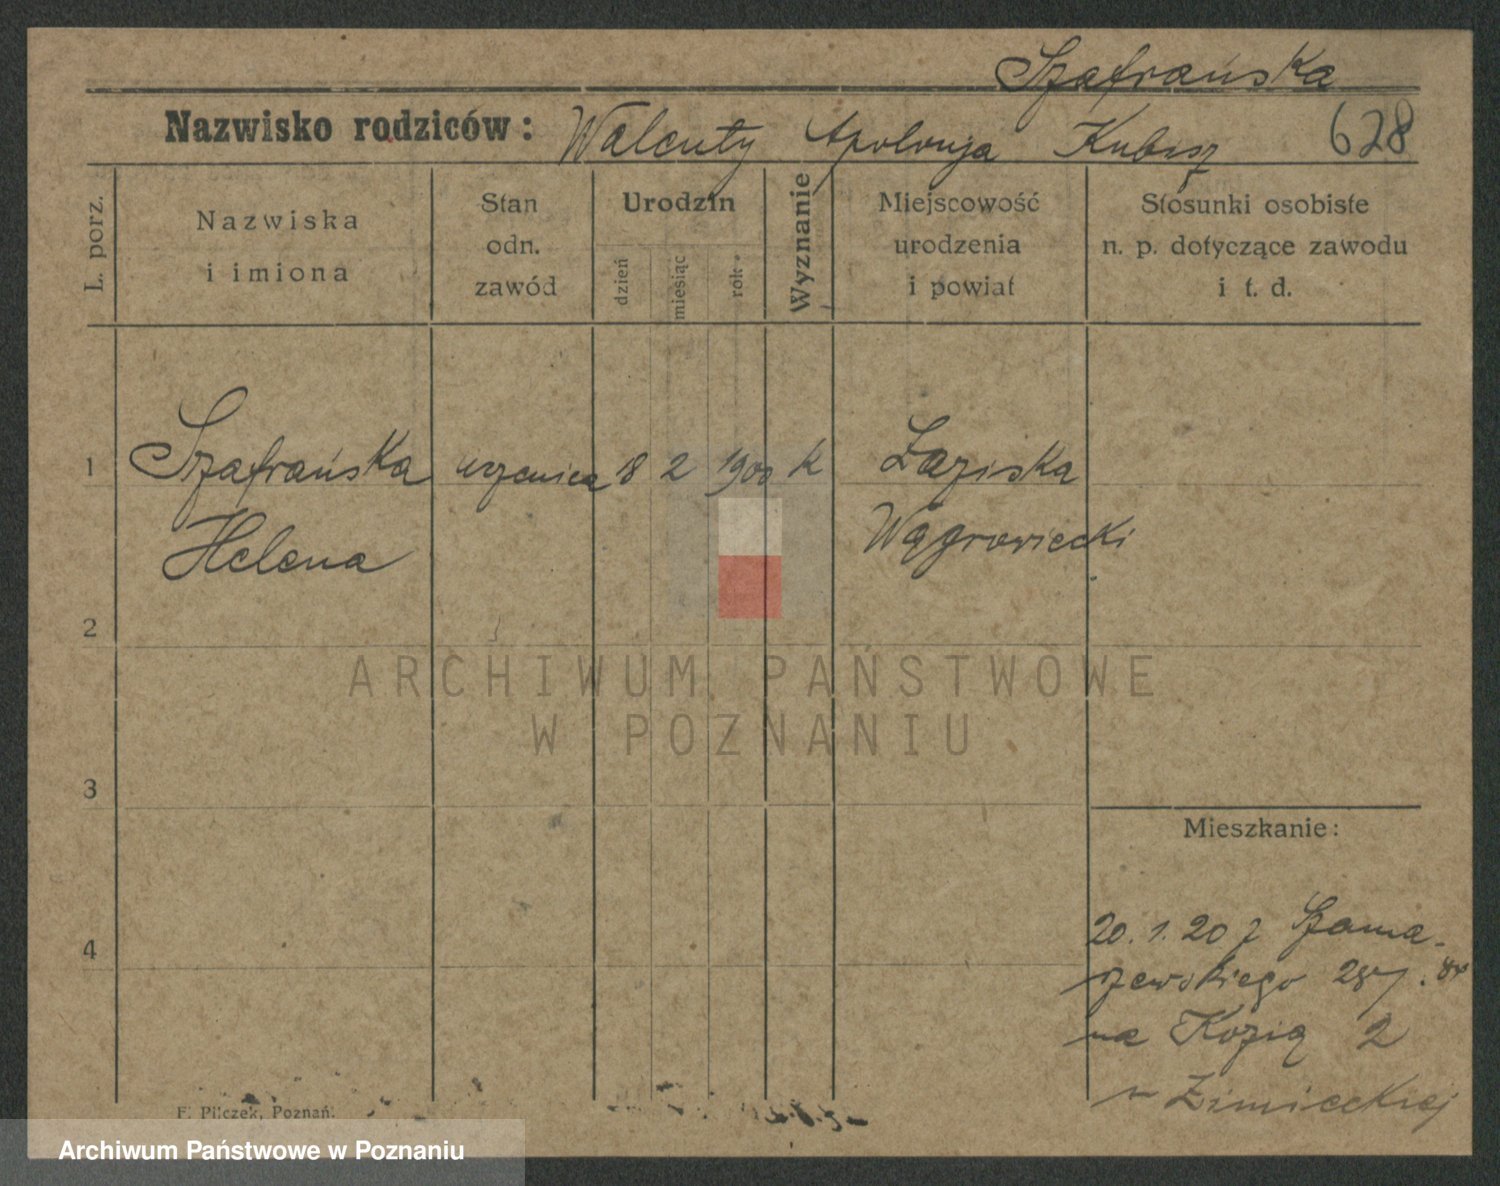 Szafrańska
Nazwisko rodziców: Walenty Apolonja Kubisz 628
L. porz.
Nazwiska
i imiona
Stan
odn.
zawód
Urodzin
dzień
miesiąc
rok
Wyznanie
Miejscowość
urodzenia
i powiat
Stosunki osobiste
n. p. dotyczące zawodu
i t. d.
1 Szafrańska uczenica 18 2 1900 k Łaziska
Helena Wągrowiecki
2
3
4
Mieszkanie:
20.1.20 z Szama-
rzewskiego
na Kozią 2
Zimieckiej
F. Pilczek, Poznań.
ARCHIWUM PAŃSTWOWE
W POZNANIU
Archiwum Państwowe w Poznaniu